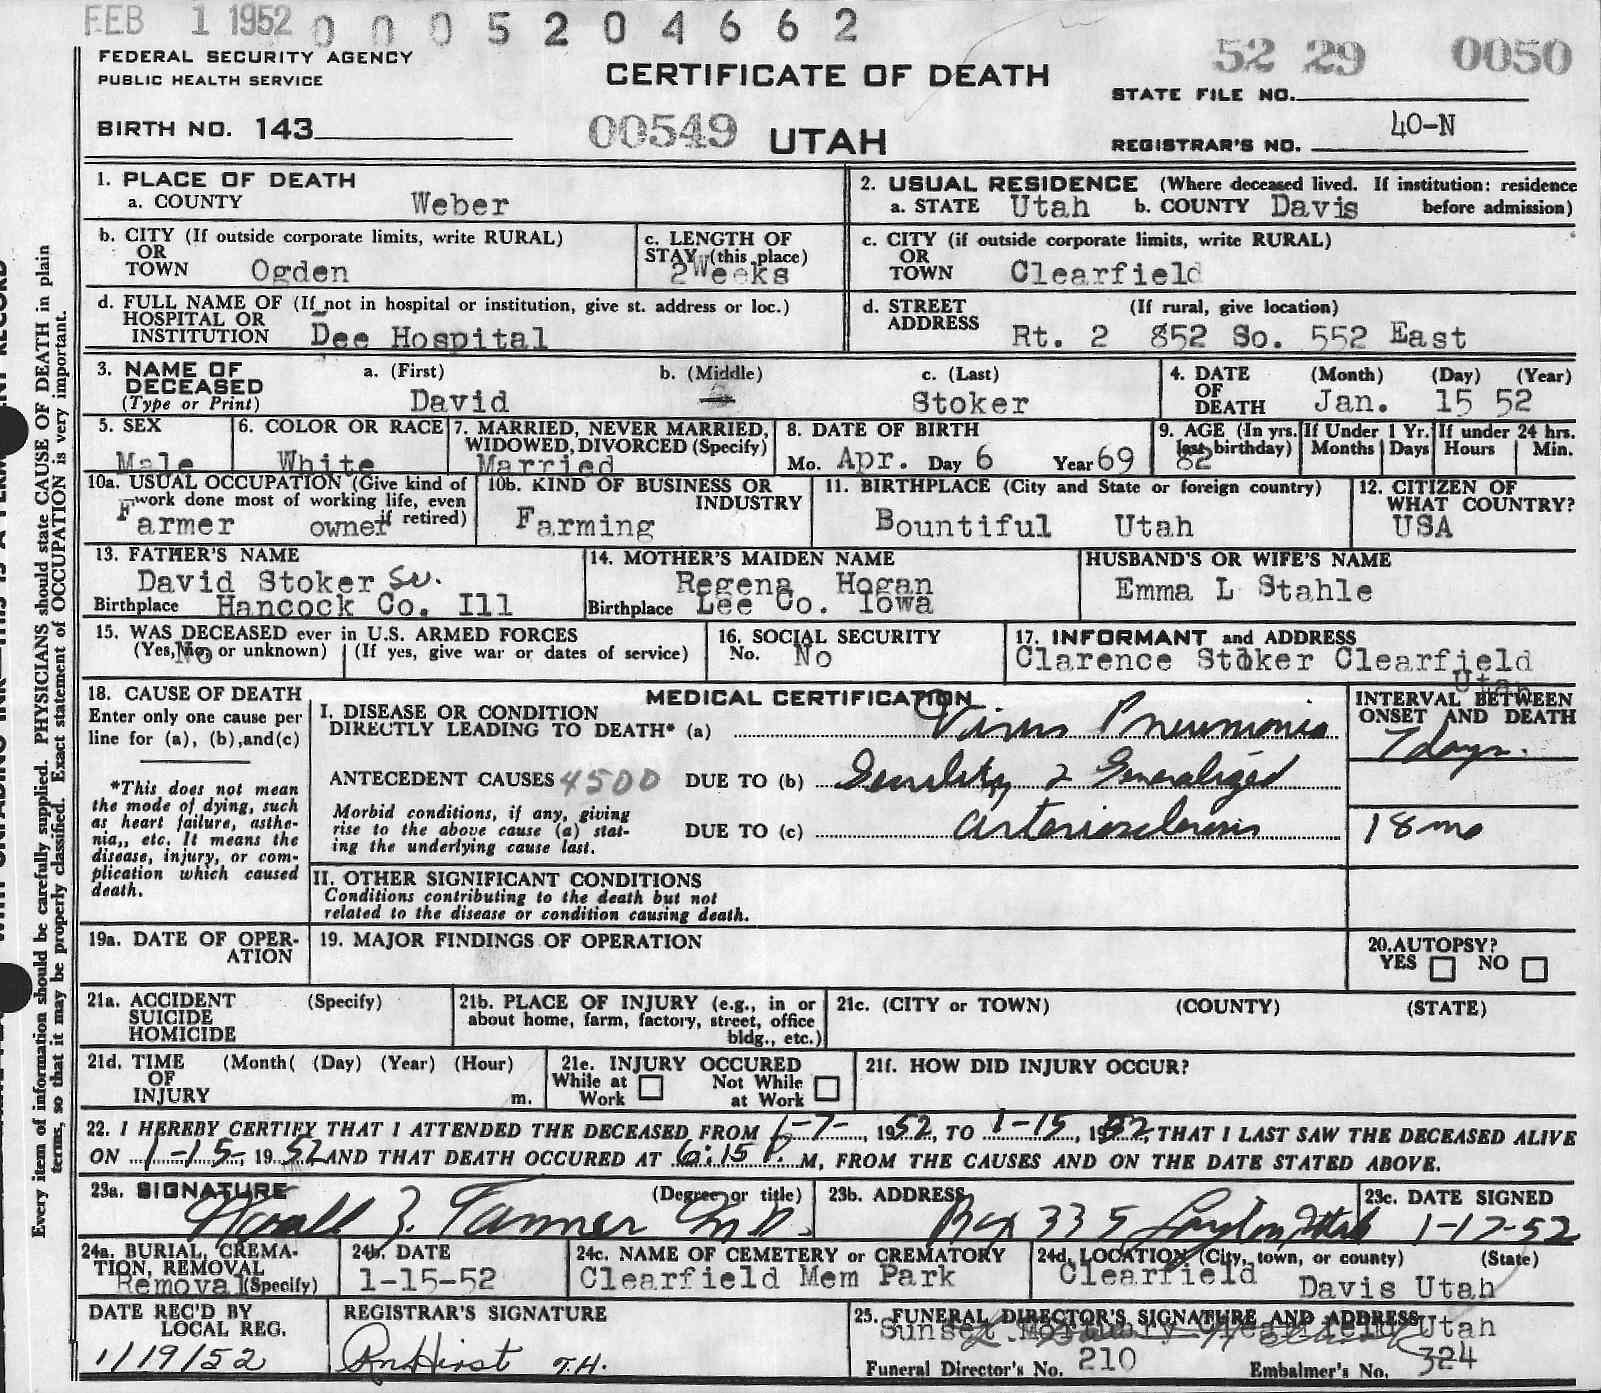 FEB 1 1952 0 0 0 5 2 0 4 6 6 2
FEDERAL SECURITY AGENCY
PUBLIC HEALTH SERVICE
CERTIFICATE OF DEATH
52 29 0050
STATE FILE NO.
BIRTH NO. 143
00549 UTAH
REGISTRAR'S NO. 40-N
1. PLACE OF DEATH
a. COUNTY Weber
2. USUAL RESIDENCE (Where deceased lived. If institution: residence
a. STATE Utah b. COUNTY Davis before admission)
b. CITY (If outside corporate limits, write RURAL)
OR
TOWN Ogden
c. LENGTH OF
STAY (this place)
2Weeks
c. CITY (if outside corporate limits, write RURAL)
OR
TOWN Clearfield
d. FULL NAME OF (If not in hospital or institution, give st. address or loc.)
HOSPITAL OR
INSTITUTION Dee Hospital
d. STREET (If rural, give location)
ADDRESS Rt. 2 852 So. 552 East
3. NAME OF a. (First) b. (Middle) c. (Last)
DECEASED
(Type or Print) David Stoker
4. DATE (Month) (Day) (Year)
OF
DEATH Jan. 15 52
5. SEX
Male
6. COLOR OR RACE
White
7. MARRIED, NEVER MARRIED,
WIDOWED, DIVORCED (Specify)
Married
8. DATE OF BIRTH
Mo. Apr. Day 6 Year 69
9. AGE (In yrs.
last birthday)
82
If Under 1 Yr.
Months Days
If under 24 hrs.
Hours Min.
10a. USUAL OCCUPATION (Give kind of
work done most of working life, even
if retired)
Farmer owner
10b. KIND OF BUSINESS OR
INDUSTRY
Farming
11. BIRTHPLACE (City and State or foreign country)
Bountiful Utah
12. CITIZEN OF
WHAT COUNTRY?
USA
13. FATHER'S NAME
David Stoker Sr.
Birthplace Hancock Co. Ill
14. MOTHER'S MAIDEN NAME
Regena Hogan
Birthplace Lee Co. Iowa
HUSBAND'S OR WIFE'S NAME
Emma L Stahle
15. WAS DECEASED ever in U.S. ARMED FORCES
(Yes, no, or unknown) (If yes, give war or dates of service)
No
16. SOCIAL SECURITY
No. No
17. INFORMANT and ADDRESS
Clarence Stoker Clearfield
Utah
18. CAUSE OF DEATH
Enter only one cause per
line for (a), (b), and (c)
*This does not mean
the mode of dying, such
as heart failure, asthe-
nia,, etc. It means the
disease, injury, or com-
plication which caused
death.
MEDICAL CERTIFICATION
I. DISEASE OR CONDITION
DIRECTLY LEADING TO DEATH* (a) Virus Pneumonia
ANTECEDENT CAUSES 4500 DUE TO (b) Senility & Generalized
Morbid conditions, if any, giving
rise to the above cause (a) stat-
ing the underlying cause last.
DUE TO (c) arteriosclerosis
INTERVAL BETWEEN
ONSET AND DEATH
7 days.
18 mo
II. OTHER SIGNIFICANT CONDITIONS
Conditions contributing to the death but not
related to the disease or condition causing death.
19a. DATE OF OPER-
ATION
19. MAJOR FINDINGS OF OPERATION
20. AUTOPSY?
YES NO
21a. ACCIDENT (Specify)
SUICIDE
HOMICIDE
21b. PLACE OF INJURY (e.g., in or
about home, farm, factory, street, office
bldg., etc.)
21c. (CITY or TOWN) (COUNTY) (STATE)
21d. TIME (Month( (Day) (Year) (Hour)
OF
INJURY m.
21e. INJURY OCCURED
While at Not While
Work at Work
21f. HOW DID INJURY OCCUR?
22. I HEREBY CERTIFY THAT I ATTENDED THE DECEASED FROM 1-7-, 1952, TO 1-15, 1952, THAT I LAST SAW THE DECEASED ALIVE
ON 1-15-, 1952 AND THAT DEATH OCCURED AT 6:15 P. M, FROM THE CAUSES AND ON THE DATE STATED ABOVE.
23a. SIGNATURE (Degree or title)
Z. Tanner M.D.
23b. ADDRESS
Box 335 Layton, Utah
23c. DATE SIGNED
1-17-52
24a. BURIAL, CREMA-
TION, REMOVAL
Removal (Specify)
24b. DATE
1-15-52
24c. NAME OF CEMETERY or CREMATORY
Clearfield Mem Park
24d. LOCATION (City, town, or county) (State)
Clearfield Davis Utah
DATE REC'D BY
LOCAL REG.
1/19/52
REGISTRAR'S SIGNATURE
Hirst T.H.
25. FUNERAL DIRECTOR'S SIGNATURE AND ADDRESS
Sunset Mortuary Clearfield Utah
Funeral Director's No. 210 Embalmer's No. 324
Every item of information should be carefully supplied. PHYSICIANS should state CAUSE OF DEATH in plain
terms, so that it may be properly classified. Exact statement of OCCUPATION is very important.